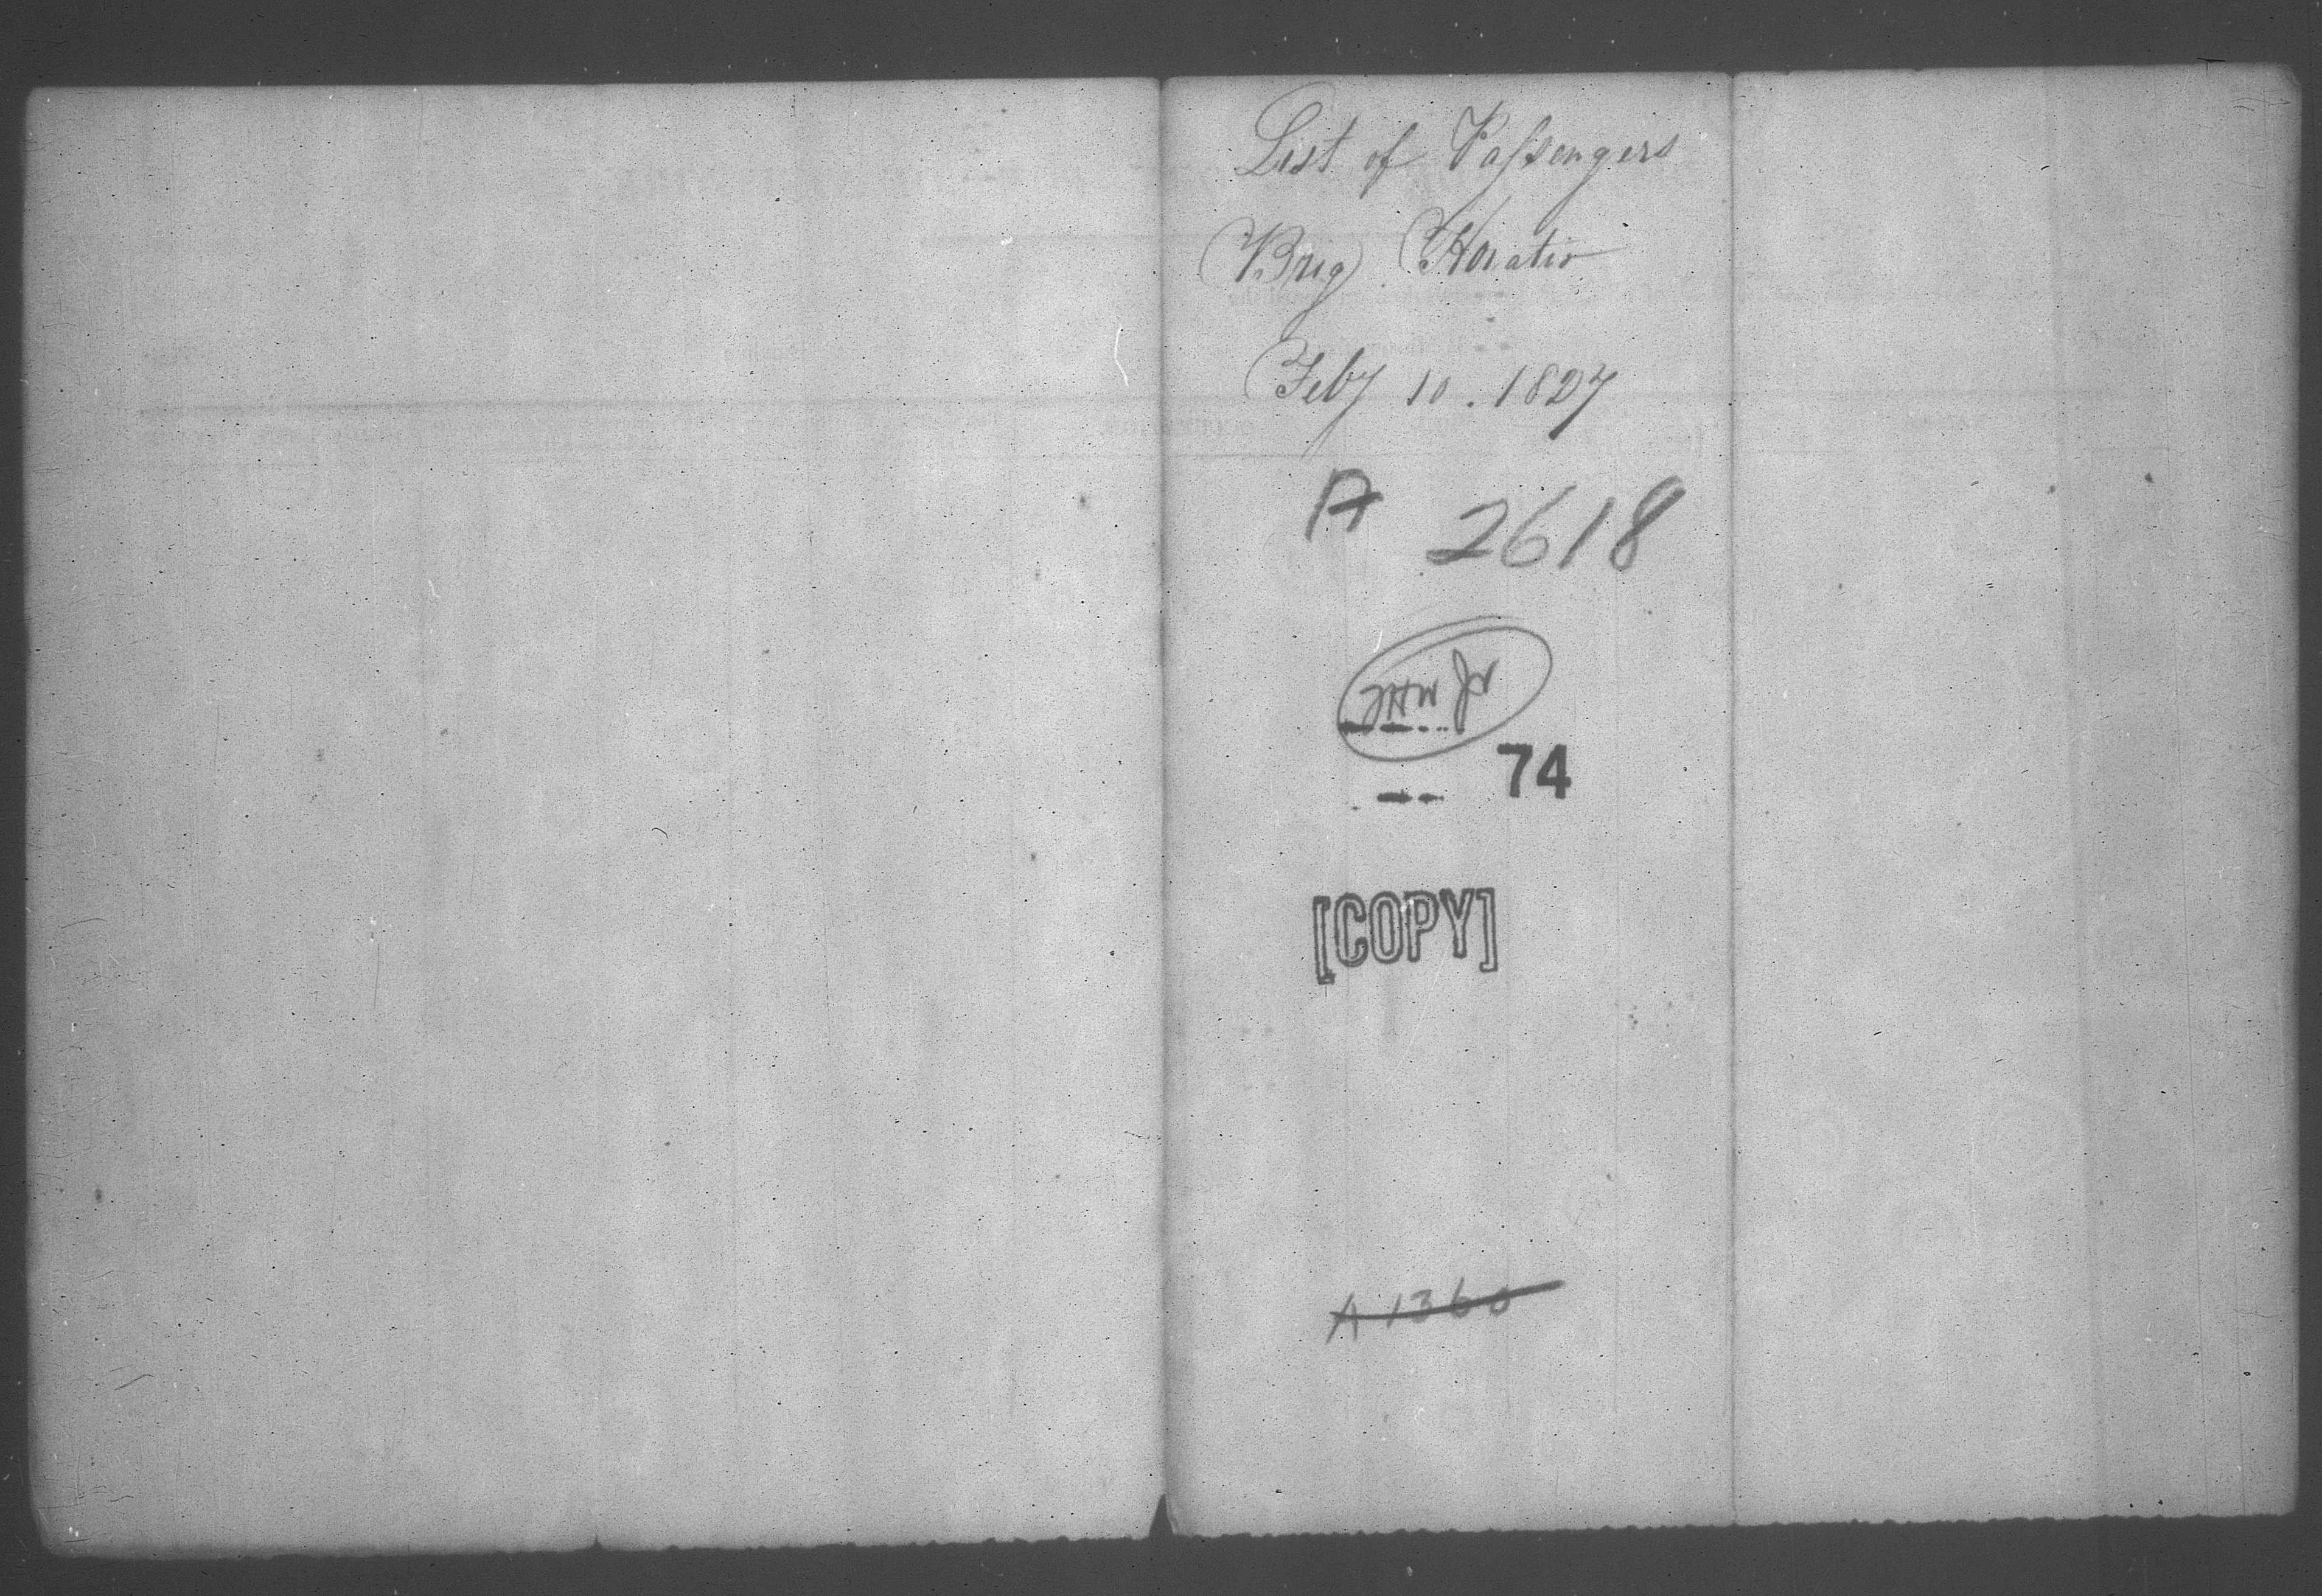 List of Passengers
Brig Horatio
Feby 10. 1827
A 2618
74
[COPY]
A 1360